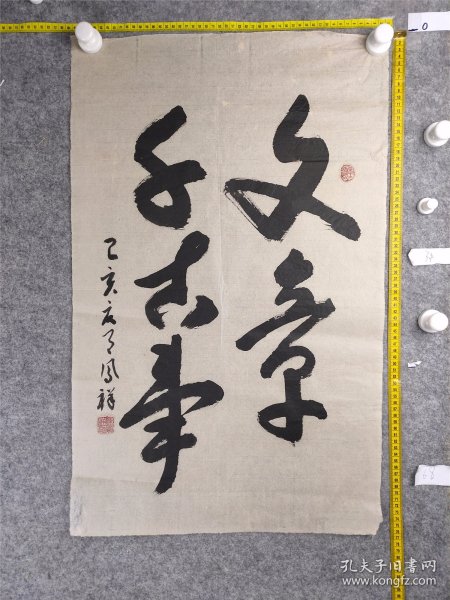 文章
千古事
乙亥夏月凤祥
孔夫子旧书网
www.kongfz.com